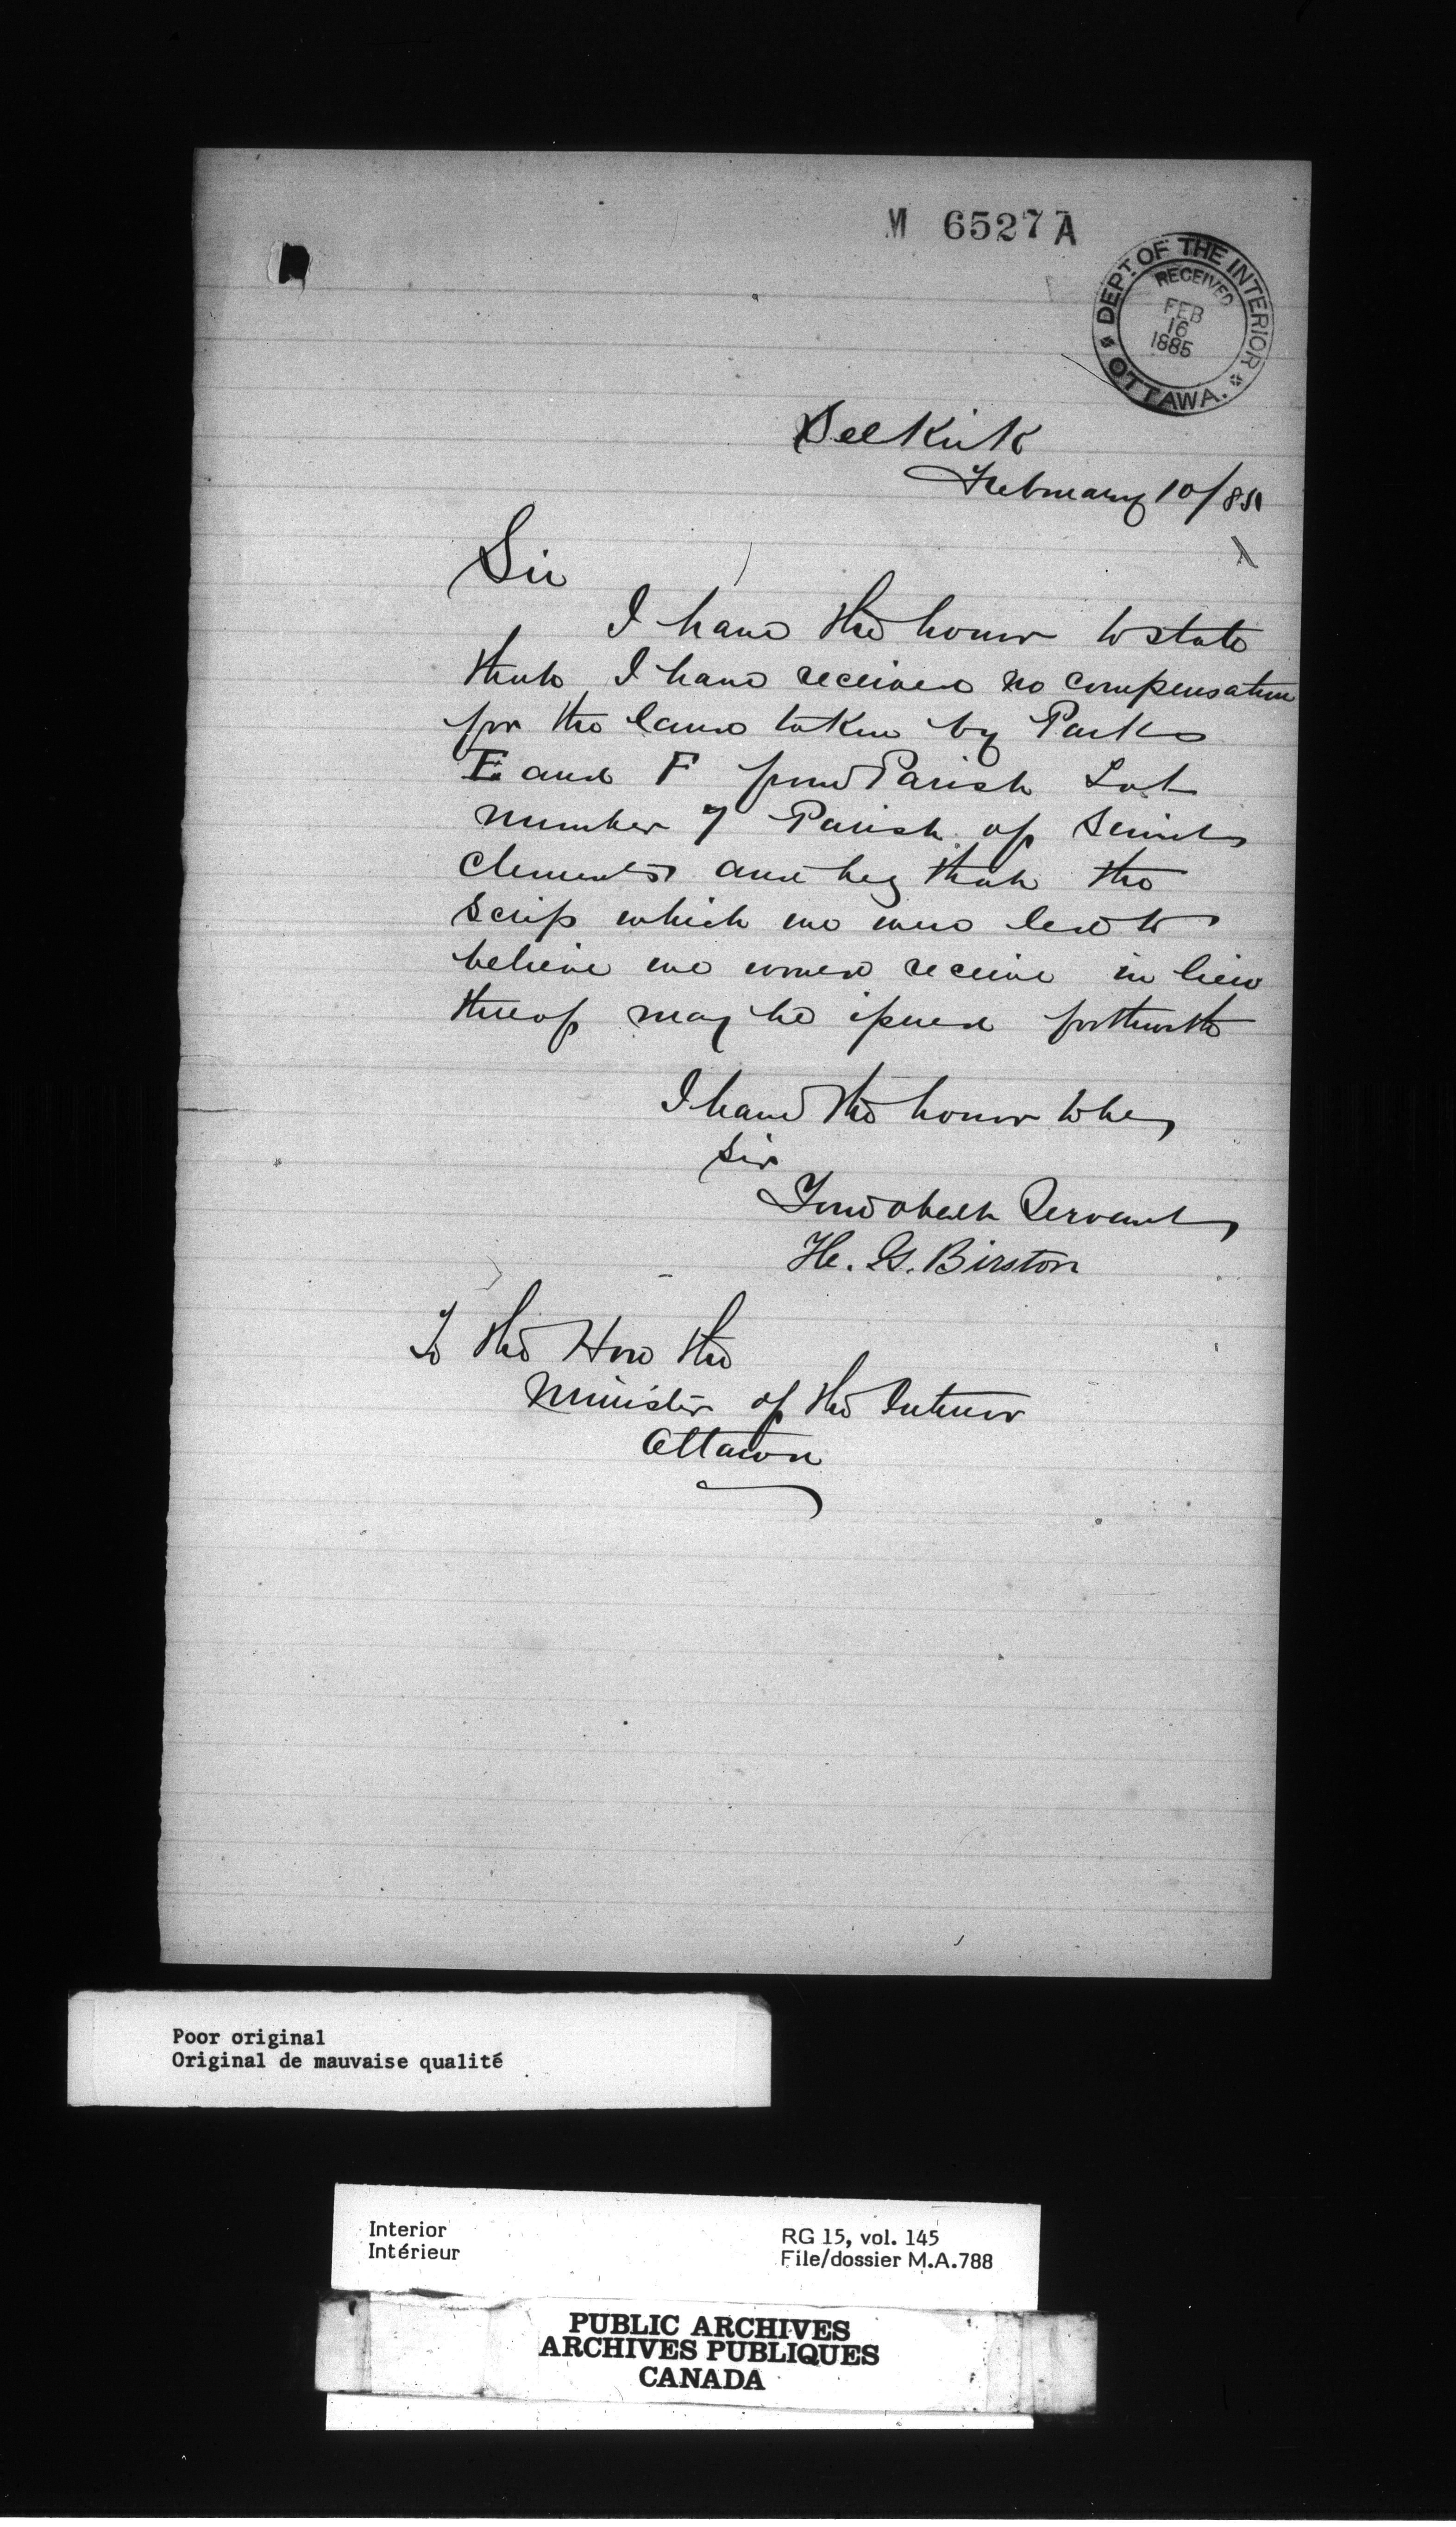 M 6527 A
DEPT. OF THE INTERIOR
RECEIVED
FEB
16
1885
OTTAWA.
Selkirk
February 10/85
Sir
I have the honor to state
that I have received no compensation
for the land taken by Parks
E and F from Parish Lot
number 7 Parish of Saint
Clements and beg that the
scrip which we were led to
believe we would receive in lieu
thereof may be issued forthwith
I have the honor to be,
Sir
Your obedt Servant,
H. G. Birston
To the Hon the
Minister of the Interior
Ottawa
Poor original
Original de mauvaise qualité
Interior
Intérieur
RG 15, vol. 145
File/dossier M.A.788
PUBLIC ARCHIVES
ARCHIVES PUBLIQUES
CANADA